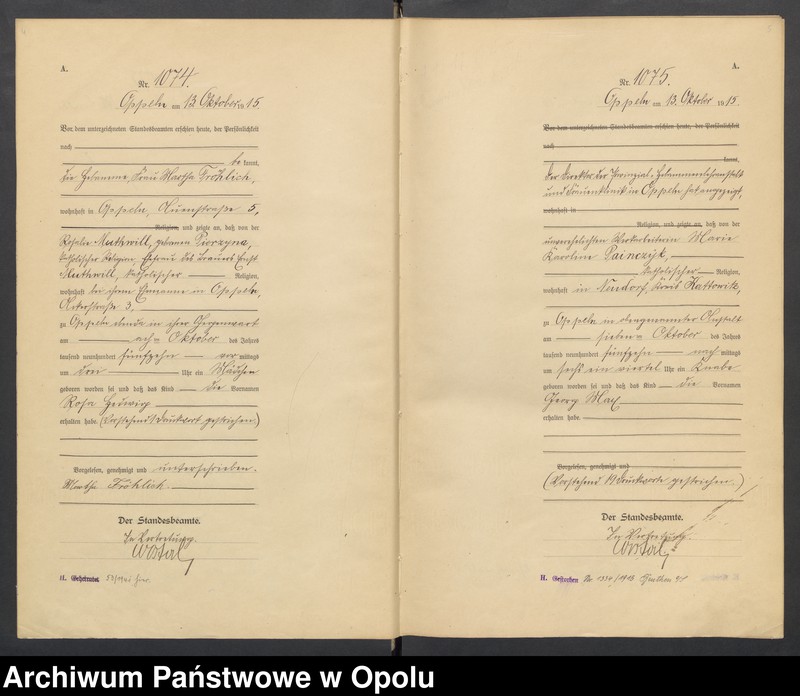 A.
Nr. 1074.
Oppeln am 13. Oktober 1915.
Vor dem unterzeichneten Standesbeamten erschien heute, der Persönlichkeit
nach
be kannt,
die Hebamme, Frau Martha Fröhlich,
wohnhaft in Oppeln,
Religion, und zeigte an, daß von der
Rosalie Muthwill, geborenen Pierzyna,
katholischer Religion, Ehefrau des Brauers Ernst
Muthwill, katholischer Religion,
wohnhaft bei ihrem Ehemanne in Oppeln,
3,
zu Oppeln in ihrer Gegenwart
am acht Oktober des Jahres
tausend neunhundert fünfzehn vormittags
um drei Uhr ein Mädchen
geboren worden sei und daß das Kind die Vornamen
Rosa Hedwig
erhalten habe. (Vorstehend 1 Druckwort gestrichen.)
Vorgelesen, genehmigt und unterschrieben.
Martha Fröhlich.
Der Standesbeamte.
In Vertretung.
H. Geheiratet
A.
Nr. 1075.
Oppeln am 13. Oktober 1915.
Vor dem unterzeichneten Standesbeamten erschien heute, der Persönlichkeit
nach
kannt,
Der Direktor der Provinzial-Hebammenlehranstalt
und Frauenklinik in Oppeln hat angezeigt,
wohnhaft in
Religion, und zeigte an, daß von der
unverehelichten Werkarbeiterin Marie
Karoline Painczyk,
katholischer Religion,
wohnhaft in Neudorf, Kreis Kattowitz,
zu Oppeln in obengenannter Anstalt
am sieben Oktober des Jahres
tausend neunhundert fünfzehn nachmittags
um sechs ein viertel Uhr ein Knabe
geboren worden sei und daß das Kind die Vornamen
Georg Max
erhalten habe.
Vorgelesen, genehmigt und
(Vorstehend 19 Druckworte gestrichen.)
Der Standesbeamte.
In Vertretung.
H. Gestorben Nr. 1334/1918
Archiwum Państwowe w Opolu